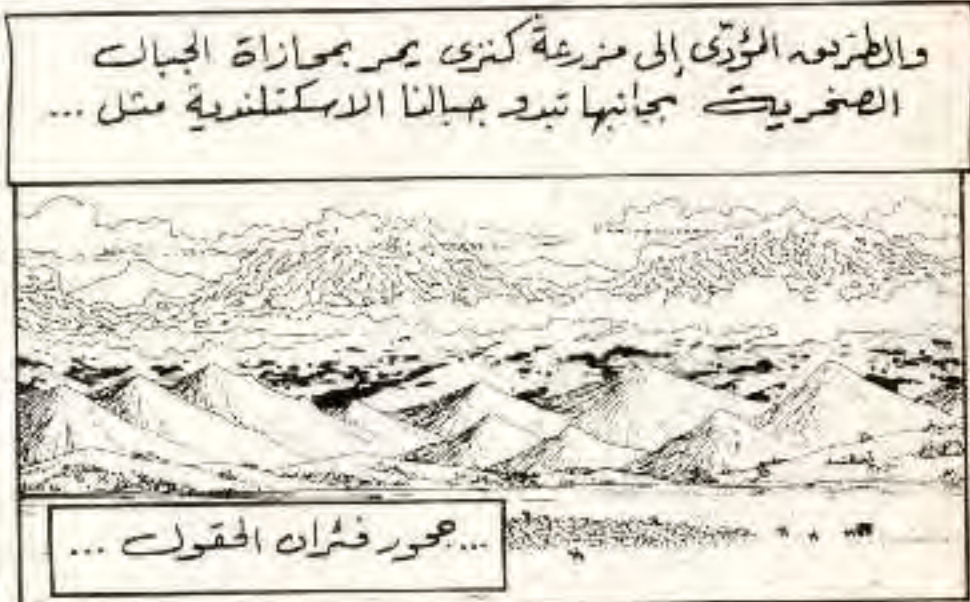 والطريق المؤدّى إلى مزرعة كنزى يمر بمحازاة الجبال
الصخرية بجانبها تبدو جبالنا الاسكتلندية مثل ...
... جحور فئران الحقول ...